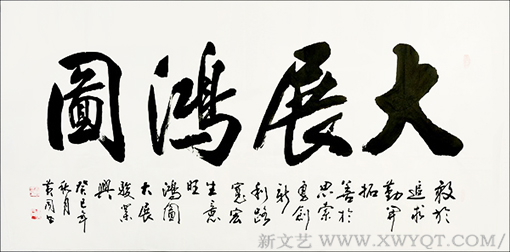 大展鴻圖
敢於
追求
勤开
拓
善於
思索
勇創
新
利路
寬宏
生意
旺
鴻圖
大展
駿業
興
癸巳年
秋月
新文艺 / WWW.XWYQT.COM